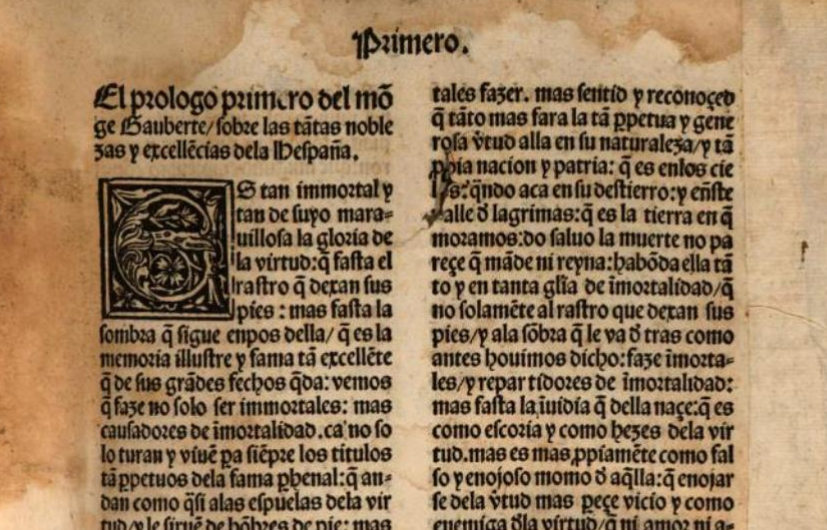 Primero.
El prologo primero del mō
ge Gauberte/sobre las tātas noble
zas y excellēcias dela Hespaña.
ES tan immortal y
tan de suyo mara-
uillosa la gloria de
la virtud:q̄ fasta el
rastro q̄ dexan sus
pies : mas fasta la
sombra q̄ sigue enpos della/ q̄ es la
memoria illustre y fama tā excellēte
q̄ de sus grādes fechos q̄da: vemos
q̄ faze no solo ser immortales: mas
causadores de īmortalidad.ca no so
lo turan y viuē pa siēpre los titulos
tā ꝑpetuos dela fama ꝑhenal:q̄ an-
dan como q̄si alas espuelas dela vir
tud/y le siruē de hōbres de pie: mas
tales fazer. mas sentid y reconoçed
q̄ tāto mas fara la tā ꝑpetua y gene
rosa v̄tud alla en su naturaleza/y tā
ꝓpia nacion y patria: q̄ es enlos cie
los:q̄ndo aca en su destierro:y en̄ste
valle d̄ lagrimas:q̄ es la tierra en q̄
moramos:do saluo la muerte no pa
reçe q̄ māde ni reyna:habōda ella tā
to y en tanta gl̄ia de īmortalidad/q̄
no solamēte al rastro que dexan sus
pies/y ala sōbra q̄ le va d̄ tras como
antes houimos dicho:faze īmorta-
les/y repartidores de īmortalidad:
mas fasta la īuidia q̄ della naçe:q̄ es
como escoria y como hezes dela vir
tud.mas es mas ꝓpiamēte como fal
so y enojoso momo d̄ aq̄lla:q̄ enojar
se dela v̄tud mas peçe vicio y como
enemiga d̄la virtud/q̄ ni amor ni a-